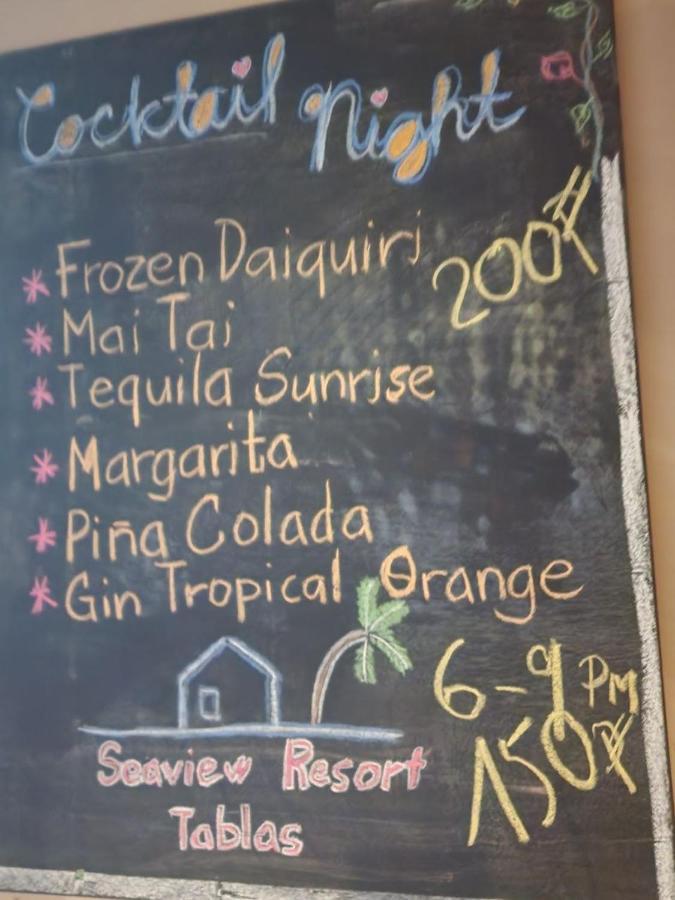 Cocktail Night
* Frozen Daiquiri 200₱
* Mai Tai
* Tequila Sunrise
* Margarita
* Piña Colada
* Gin Tropical Orange
6-9 PM
150₱
Seaview Resort
Tablas